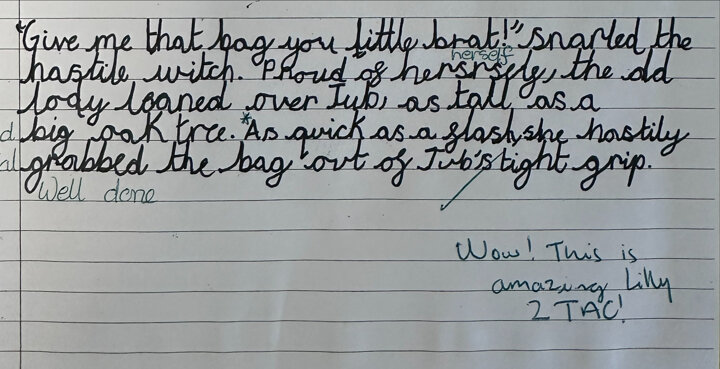 "Give me that bag you little brat!" snarled the
herself
hastile witch. Proud of hersrsely, the old
lody loaned over Jub, as tall as a
d big oak tree. *As quick as a flash, she hastily
al grabbed the bag out of Jub's tight grip.
Well done
Wow! This is
amazing Lilly
2 TAC!